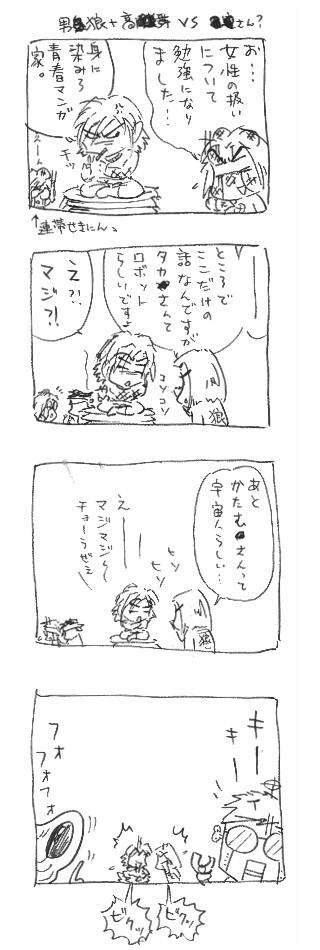 狼+高
VS
さん?
お…
女性の扱い
について
勉強になり
ました…
身に
染みろ
青春マンガ
家。
チッ
えーん
↑連帯せきにん。
ところで
ここだけの
話なんですが
タカ さんて
ロボット
らしいですよ
コソコソ
え?!
マジ?!
狼
あと
かたむ さんって
宇宙人らしい…
ヒソ
ヒソ
えーー
マジマジ〜
チョーうぜえ
キー
キー
フォ
フォフォ
ビクッ
ビクッ